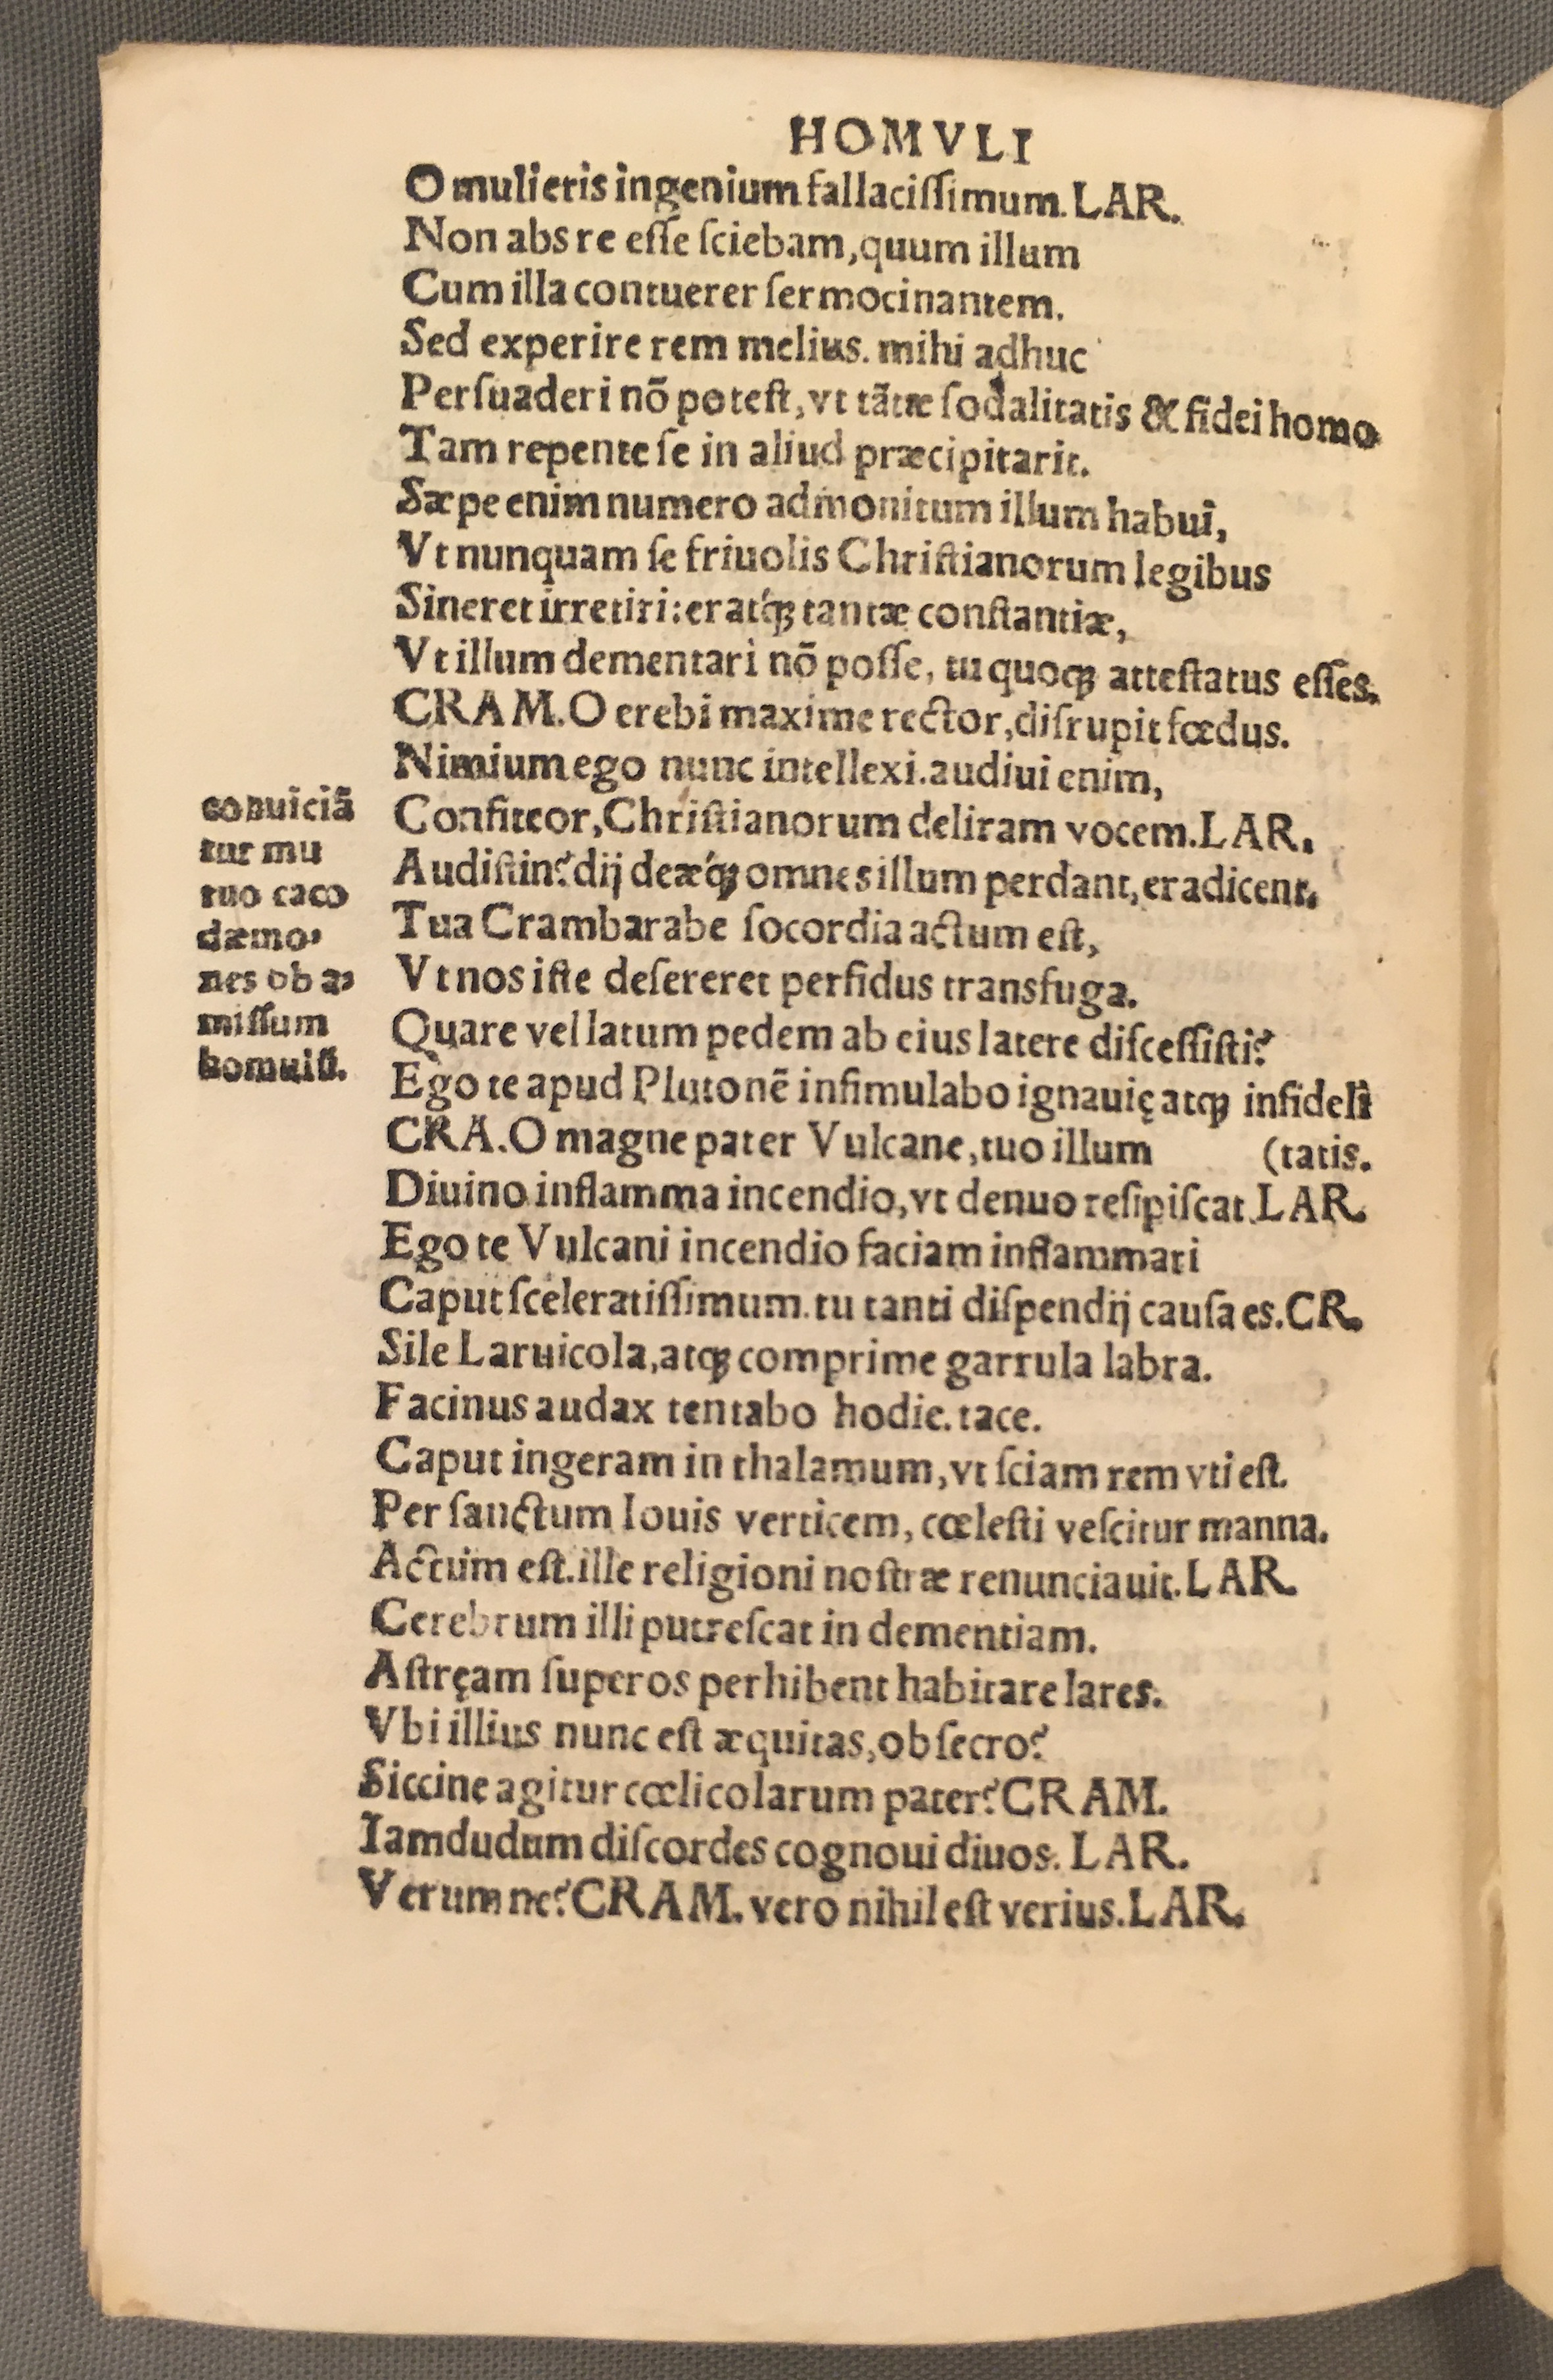 HOMVLI
O mulieris ingenium fallaciſſimum. LAR.
Non abs re eſſe ſciebam, quum illum
Cum illa contuerer ſermocinantem.
Sed experire rem melius. mihi adhuc
Perſuaderi nõ poteſt, vt tãtæ ſodalitatis & fidei homo
Tam repente ſe in aliud præcipitarit.
Sæpe enim numero admonitum illum habui,
Vt nunquam ſe friuolis Chriſtianorum legibus
Sineret irretiri: eratq́ꝫ tantæ conſtantiæ,
Vt illum dementari nõ poſſe, tu quoqꝫ atteſtatus eſſes.
CRAM. O erebi maxime rector, diſrupit fœdus.
Nimium ego nunc intellexi. audiui enim,
Confiteor, Chriſtianorum deliram vocem. LAR.
Audiſtin? dij deæq́ꝫ omnes illum perdant, eradicent.
Tua Crambarabe ſocordia actum eſt,
Vt nos iſte deſereret perfidus transfuga.
Quare vel latum pedem ab eius latere diſceſſiſti?
Ego te apud Plutonẽ inſimulabo ignauię atqꝫ infideli
CRA. O magne pater Vulcane, tuo illum (tatis.
Diuino inflamma incendio, vt denuo reſipiſcat. LAR.
Ego te Vulcani incendio faciam inflammari
Caput ſceleratiſſimum. tu tanti diſpendij cauſa es. CR.
Sile Laruicola, atqꝫ comprime garrula labra.
Facinus audax tentabo hodie. tace.
Caput ingeram in thalamum, vt ſciam rem vti eſt.
Per ſanctum Iouis verticem, cœleſti veſcitur manna.
Actum eſt. ille religioni noſtræ renunciauit. LAR.
Cerebrum illi putreſcat in dementiam.
Aſtręam ſuperos perhibent habitare lares.
Vbi illius nunc eſt æquitas, obſecro?
Siccine agitur cœlicolarum pater? CRAM.
Iamdudum diſcordes cognoui diuos. LAR.
Verum ne? CRAM. vero nihil eſt verius. LAR.
conuiciã
tur mu
tuo caco
dæmo⸗
nes ob a⸗
miſſum
homulũ.